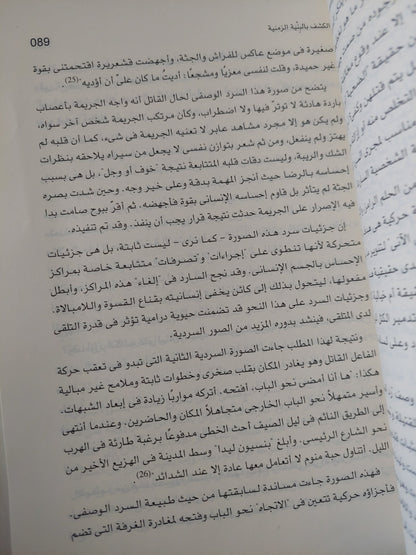 الكشف بالبنية الزمنية
089
صغيرة فى موضع عاكس للفراش والجثة، وأجهضت قشعريرة اقتحمتنى بقوة
غير حميدة، وقلت لنفسى معزيًا ومشجعًا: أديتُ ما كان علىَّ أن أؤديه".(25)
يتضح من صورة هذا السرد الوصفى لخال القاتل أنه واجه الجريمة بأعصاب
باردة هادئة لا توتر فيها ولا اضطراب، وكأن مرتكب الجريمة شخص آخر سواه،
ولم يكن هو إلا مجرد مشاهد عابر لا تعنيه الجريمة فى شىء، كما أن قلبه لم
يهتز ولم ينفعل، ومن ثم شعر بتوازن نفسى لا يجعل من سيراه يلاحقه بنظرات
الشك والريبة، وليست دقات قلبه المتتابعة نتيجة "خوف أو وجل"، بل هى بسبب
إحساسه بالرضا حيث أنجز المهمة بدقة وعلى خير وجه. وحين شدت بصره
الجثة لم يتأثر بل قاوم إحساسه الإنسانى بقوة فأجهضه. ثم أقرَّ ببوح صامت بدا
فيه الإصرار على الجريمة حدثت نتيجة قرار يجب أن ينفذ. وقد تم تنفيذه.
إن جزئيات سرد هذه الصورة – كما نرى – ليست ثابتة، بل هى جزئيات
متحركة لأنها تنطوى على "إجراءات" و"تصرفات" متتابعة خاصة بمراكز
الإحساس بالجسم الإنسانى. وقد نجح السارد فى "إلغاء" هذه المراكز، وأبطل
مفعولها، ليتحول بذلك إلى كائن يخفى إنسانيته بقناع القسوة واللامبالاة.
وجزئيات السرد على هذا النحو قد تضمنت حيوية درامية تؤثر فى قدرة التلقى
لدى المتلقى، فينشد بدوره المزيد من الصور السردية.
ونتيجة لهذا المطلب جاءت الصورة السردية الثانية التى تبدو فى تعقب حركة
الفاعل القاتل وهو يغادر المكان بقلب صخرى وخطوات ثابتة وملامح غير مبالية
هكذا: "ها أنا أمضى نحو الباب، أفتحه. أتركه مواربًا زيادة فى إبعاد الشبهات.
وأسير متمهلاً نحو الباب الخارجى متجاهلاً المكان والحاضرين. وعندما أنتهى
إلى الطريق النائم فى ليل الصيف أحث الخطى مدفوعًا برغبة طارئة فى الهرب
نحو الشارع الرئيسى. وأبلغ "بنسيون ليدا" وسط المدينة فى الهزيع الأخير من
الليل. أتناول حبة منوم لا أتعامل معها عادة إلا عند الشدائد".(26)
فهذه الصورة جاءت مساندة لسابقتها من حيث طبيعة السرد الوصفى.
فأجزاؤه حركية تتعين فى "الاتجاه" نحو الباب وفتحه لمغادرة الغرفة التى تضم